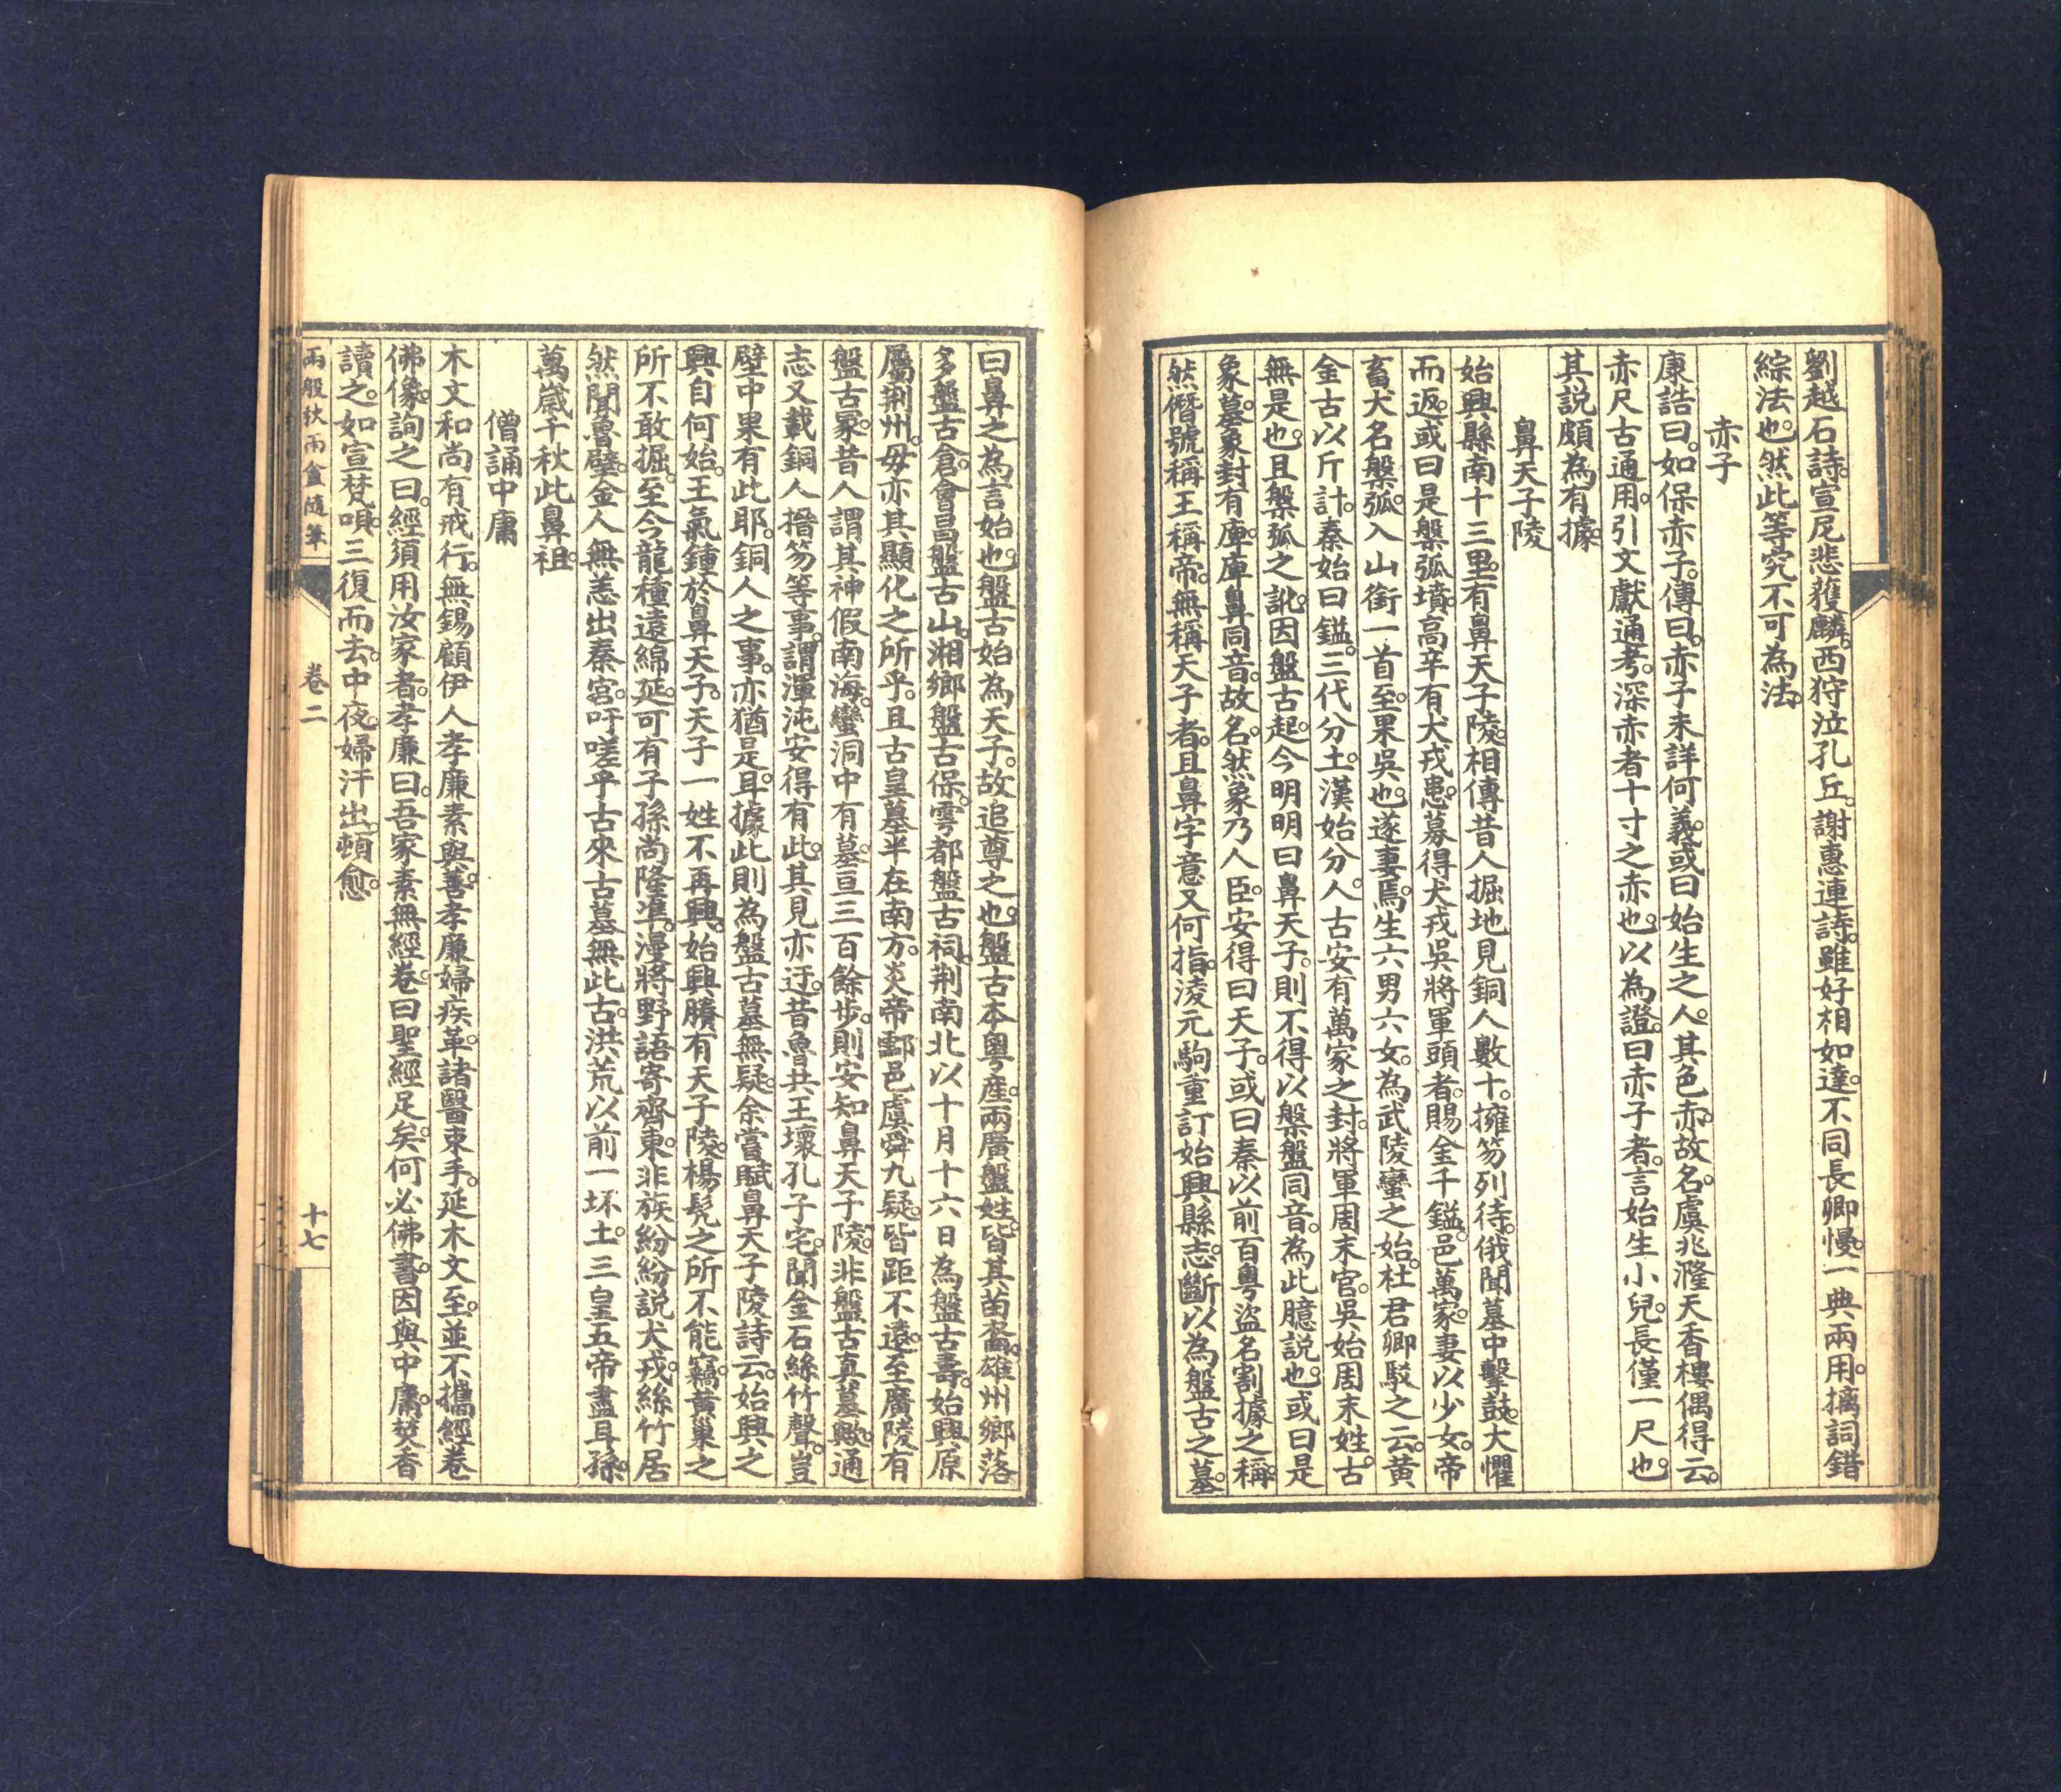 劉越石詩。宣尼悲獲麟。西狩泣孔丘。謝惠連詩。雖好相如達。不同長卿慢。一典兩用。摛詞錯
綜法也。然此等究不可為法。
赤子
康誥曰。如保赤子。傳曰。赤子未詳何義。或曰始生之人。其色赤。故名。虞兆漋天香樓偶得云。
赤尺古通用。引文獻通考。深赤者十寸之赤也。以為證。曰赤子者。言始生小兒。長僅一尺也。
其説頗為有據。
鼻天子陵
始興縣南十三里。有鼻天子陵。相傳昔人掘地見銅人數十。擁笏列待。俄聞墓中擊鼓。大懼
而返。或曰是槃弧墳。高辛有犬戎患。募得犬戎吳將軍頭者。賜金千鎰。邑萬家。妻以少女。帝
畜犬名槃弧。入山銜一首。至果吳也。遂妻焉。生六男六女。為武陵蠻之始。杜君卿駁之云。黄
金古以斤計。秦始曰鎰。三代分土。漢始分人。古安有萬家之封。將軍周末官。吳始周末姓。古
無是也。且槃弧之訛。因盤古起。今明明曰鼻天子。則不得以槃盤同音。為此臆説也。或曰是
象墓。象封有庳。庳鼻同音。故名。然象乃人臣。安得曰天子。或曰秦以前百粤盜名割據之稱。
然僭號稱王稱帝。無稱天子者。且鼻字意又何指。淩元駒重訂始興縣志。斷以為盤古之墓。
曰鼻之為言始也。盤古始為天子。故追尊之也。盤古本粤産。兩廣盤姓。皆其苗裔。雄州鄉落
多盤古倉。會昌盤古山。湘鄉盤古保。雩都盤古祠。荆南北以十月十六日為盤古壽。始興原
屬荆州。毋亦其顯化之所乎。且古皇墓半在南方。炎帝酃邑。虞舜九疑。皆距不遠。至廣陵有
盤古冢。昔人謂其神假。南海蠻洞中有墓。亘三百餘步。則安知鼻天子陵。非盤古真墓歟。通
志又載銅人搢笏等事。謂渾沌安得有此。其見亦迂。昔魯共王壞孔子宅。聞金石絲竹聲。豈
壁中果有此耶。銅人之事。亦猶是耳。據此則為盤古墓無疑。余嘗賦鼻天子陵詩云。始興之
興自何始。王氣鍾於鼻天子。天子一姓不再興。始興賸有天子陵。楊髡之所不能竊。黄巢之
所不敢掘。至今龍種遠綿延。可有子孫尚隆準。漫將野語寄齊東。非族紛紛説犬戎。絲竹居
然聞魯壁。金人無恙出秦宫。吁嗟乎古來古墓無此古。洪荒以前一坏土。三皇五帝盡耳孫。
萬嵗千秋此鼻祖。
僧誦中庸
木文和尚有戒行。無錫顧伊人孝廉素與善。孝廉婦疾革。諸醫束手。延木文至。並不攜經卷
佛像。詢之曰。經須用汝家者。孝廉曰。吾家素無經卷。曰聖經足矣。何必佛書。因與中庸。焚香
讀之。如宣梵唄。三復而去。中夜。婦汗出。頓愈。
兩般秋雨盦隨筆
卷二
十七